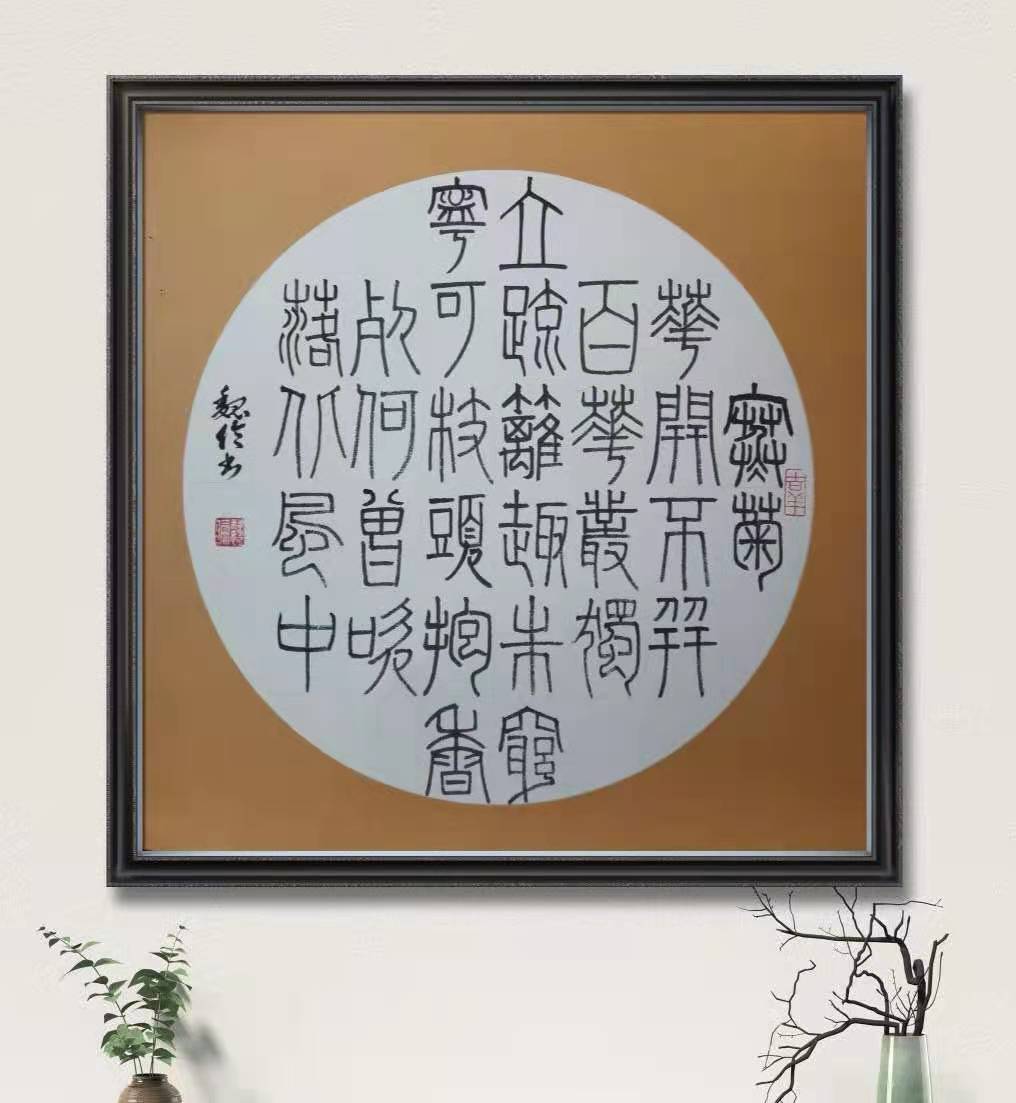 寒菊
吉羊
華開不并
百華叢獨
立疏籬趣未窮
寧可枝頭抱香
死何曾吹
落北風中
魏书